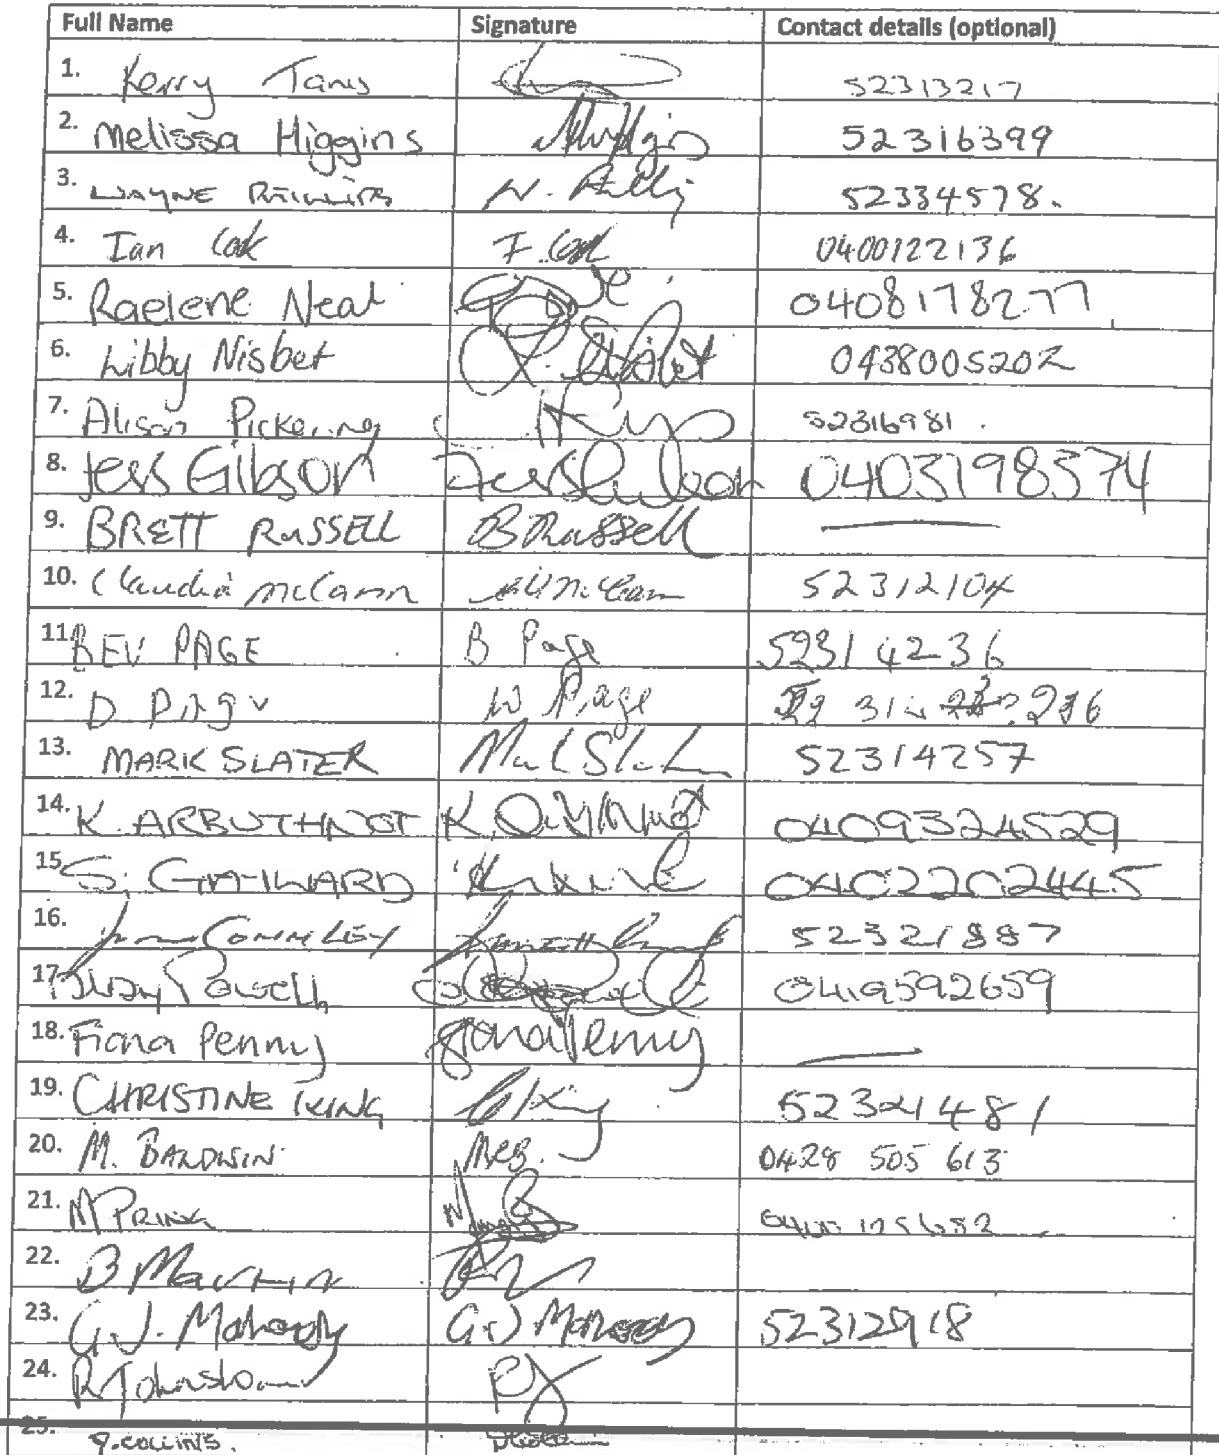 Full Name Signature Contact details (optional)
1. Kerry 52313217
2. Melissa Higgins 52316399
3. WAYNE 52334578.
4. Ian Cook I. Cook 0400122136
5. Raelene Neal 0408178277
6. Libby Nisbet L. Nisbet 0438005202
7. Alison Pickering 52316981.
8. Jess Gibson Jess Gibson 0403198374
9. BRETT RUSSELL B Russell
10. Claudia McCann 52312104
11. BEV PAGE B Page 52314236
12. D Page
13. MARK SLATER Mark Slater 52314257
14. K. ARBUTHNOT K. 0409324529
15. S. GAILWARD 0402202445
16. 52321887
17. Powell 0419592659
18. Fiona Penny Fiona Penny
19. CHRISTINE KING CKing 52321481
20. M. BALDWIN MEB. 0428 505 613
21. M
22. B
23. G.J. Mahoody G.J Mahoody 52312918
24. R Johnston RJ
25. P. COLLINS.